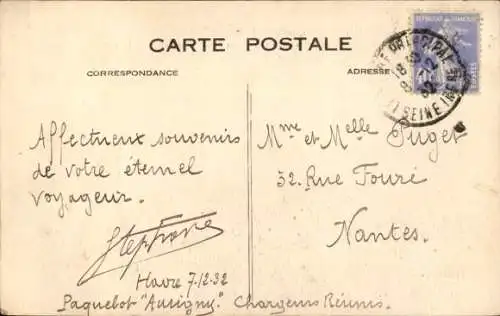 CARTE POSTALE
CORRESPONDANCE
ADRESSE
Affectueux souvenirs
de votre éternel
voyageur.
Stephane
Havre 7.12.32
Paquebot "Aurigny" Chargeurs Réunis.
Mme et Melle Puget
32. Rue Fouré
Nantes.
PRINCIPAL
SEINE INFRE